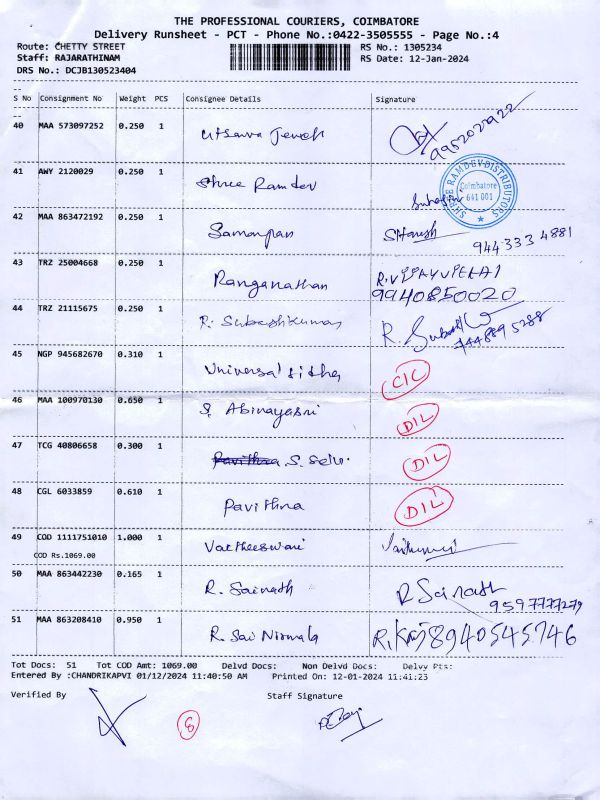 THE PROFESSIONAL COURIERS, COIMBATORE
Delivery Runsheet - PCT - Phone No.:0422-3505555 - Page No.:4
Route: CHETTY STREET RS No.: 1305234
Staff: RAJARATHINAM RS Date: 12-Jan-2024
DRS No.: DCJB130523404
S No Consignment No Weight PCS Consignee Details Signature
40 MAA 573097252 0.250 1 Utsava Jewels 9952022922
41 AWY 2120029 0.250 1 Shree Ramdev
SHREE RAMDEV DISTRIBUTORS Coimbatore 641 001
42 MAA 863472192 0.250 1 Samanpan SHaresh
944 333 4881
43 TRZ 25004668 0.250 1 Ranganathan R.VIJAYVELAI
9940850020
44 TRZ 21115675 0.250 1 R. Subashkumar R.
7448895288
45 NGP 945682670 0.310 1 Universal CIC
46 MAA 100970130 0.650 1 S. Abinayasri DIL
47 TCG 40806658 0.300 1 Pavithra S. Selvi DIL
48 CGL 6033859 0.610 1 Pavithra DIL
49 COD 1111751010 1.000 1 Vartheeswari
COD Rs.1069.00
50 MAA 863442230 0.165 1 R. Sainath R Sainath
9597777279
51 MAA 863208410 0.950 1 R. Sai Nirmala 8940545746
Tot Docs: 51 Tot COD Amt: 1069.00 Delvd Docs: Non Delvd Docs: Delvy Pts:
Entered By :CHANDRIKAPVI 01/12/2024 11:40:50 AM Printed On: 12-01-2024 11:41:23
Verified By Staff Signature
8